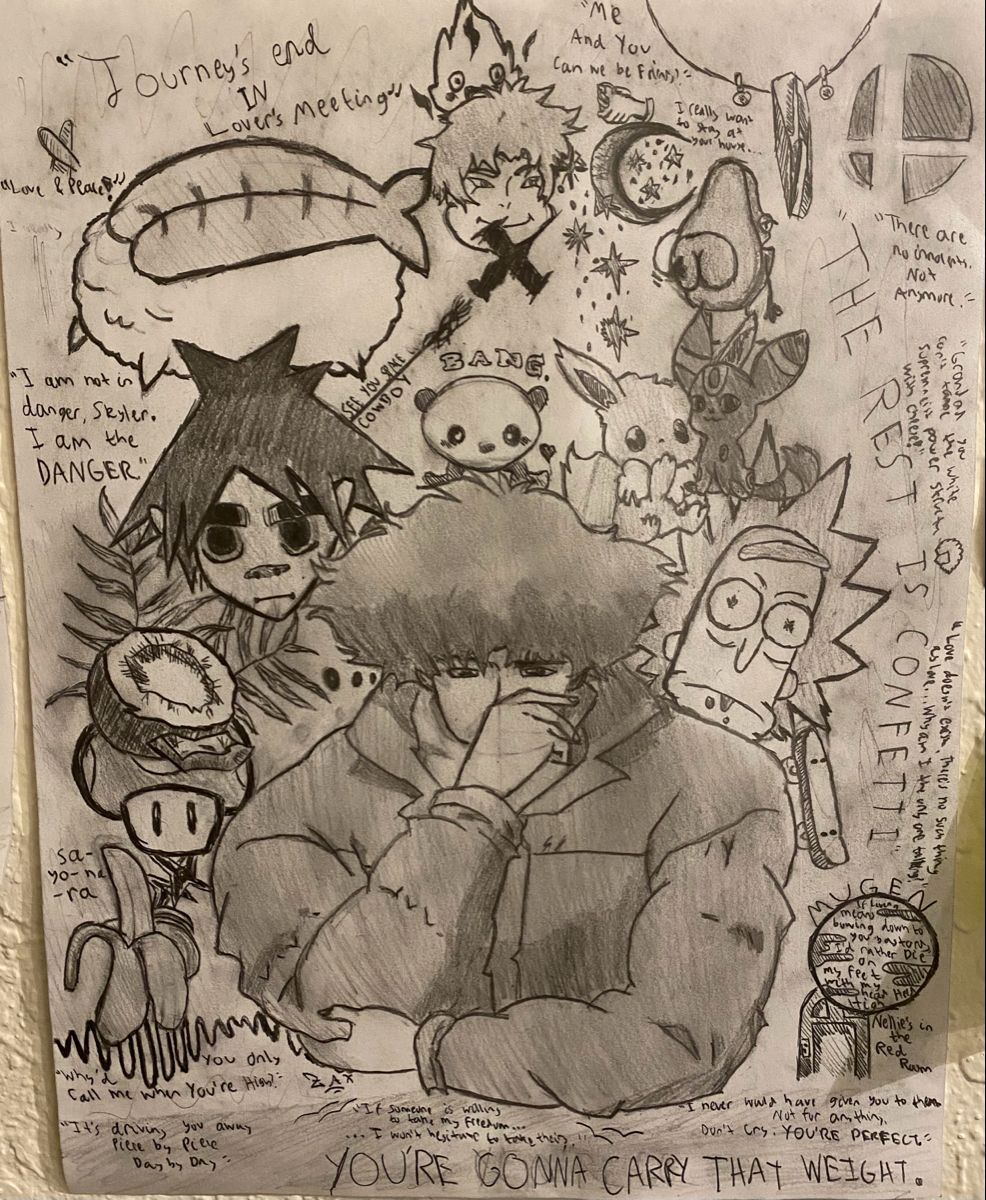 "Journey's end
IN
Lover's Meeting"
"Me
And You
Can we be Friends?"
I really want
to stay at
your house...
"Love & Peace!"
"There are
no innocents.
Not
Anymore."
"THE REST IS CONFETTI"
"I am not in
danger, Skyler.
I am the
DANGER"
SEE YOU SPACE
COWBOY
BANG.
"Grandad you
can't tame the white
supremacist power structure
with cheese!"
"Love doesn't exist, There's no such thing
as love... Why am I the only one talking?"
sa-
yo-na
-ra
MUGEN
If Living
means
bowing down to
you bastards
I'd rather DIE
on
my Feet
with my
head Held
High
Nellie's in
the
Red
Room
"Why'd You only
Call me when You're High?"
"It's driving you away
Piece by Piece
Day by Day"
"If someone is willing
to take my freedom...
... I won't hesitate to take theirs."
"I never would have given you to them
Not for anything.
Don't Cry. YOU'RE PERFECT."
YOU'RE GONNA CARRY THAT WEIGHT.